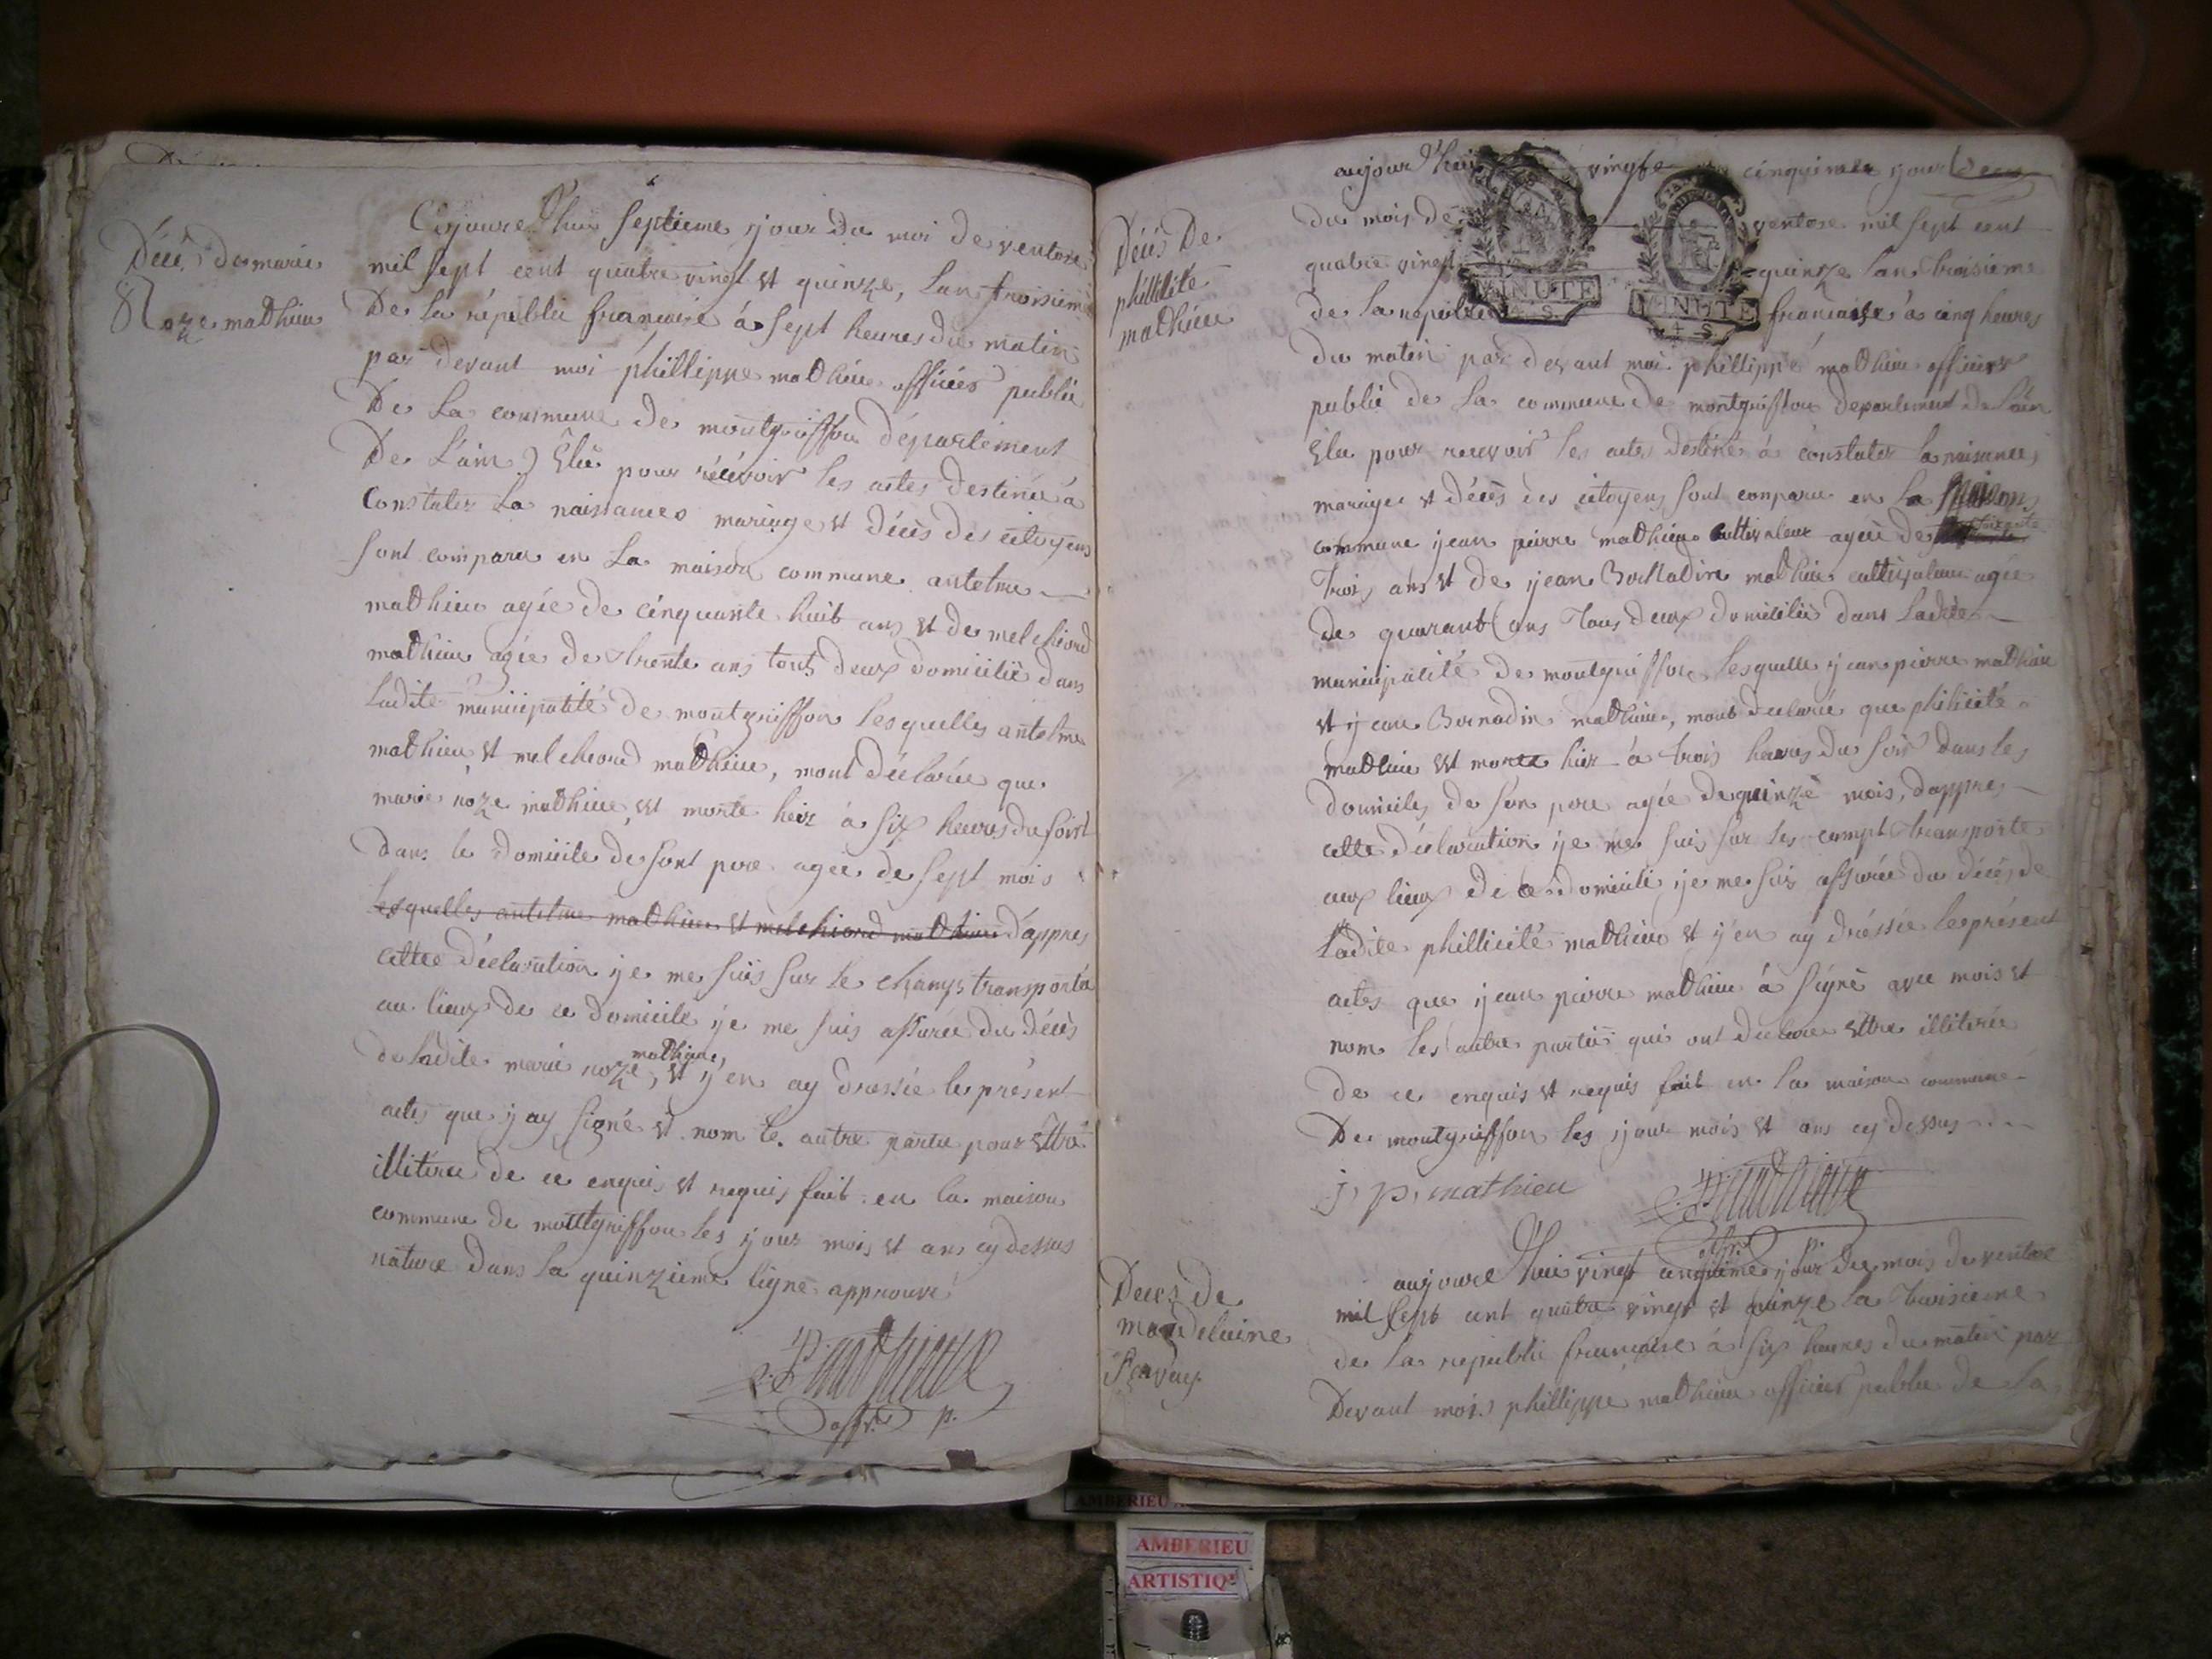 Décé de marie
Roze mathieu
Cejourd'huis septieme jour du moi de ventose
mil sept cent quatre vingt et quinze, lan troisieme
De la républi françoise à sept heures du matin
par devant moi phillippe mathieu officiér publie
De la commune de montgriffon département
De L'ain Élue pour récévoir les actes destinée à
Constater la naissances mariage et décès des citoyens
sont comparu en La maison commune antelme
mathieu agée de cinquante huit ans et de melchiord
mathieu agée de trente ans tout deux domiciliè dans
ladite municipatité de montgriffon lesquelles antelme
mathieu et melchiord mathieu, mont déclarée que
marie roze mathieu, est morte heir à six heures du soirt
dans le domicile de sont pere agee de sept mois
lesquelles antelme mathieu et melchiord mathieu d'appres
cettee déclaration je me suis sur le champs transportéa
au lieux de ce domicile je me suis assurée du décès
de ladite marie roze mathieu, et j'en ay dressée le présent
actes que jay signé et nom le autre partie pour Ettré
illitéree de ce enquis et requis fait en la maison
commune de montgriffon les jour mois et ans cy dessus
nature dans la quinzieme ligne approuvé
P mathieu
offr. p.
Décés De
phillilité
mathieu
aujourd'hui vingte cinquimes jour
du mois de ventose mil sept cent
quatre vingt quinze lan troisieme
de la republi francaise à cinq heures
du matin par devant moi phillippe mathieu officier
publie de la commune de montgriffon departement de lain
Élue pour recevoir les actes destiné à constater la naisances
mariage et décès des citoyens sont comparu en la maison
commune jean pierre mathieu cultivateur agée de trente
trois ans et de jean Bernadin mathieu cultivateur agée
de quarant ans tous deux domicilié dans ladite
municipatité de montgriffon lesquelle jean pierre mathieu
et jean Bernadin mathieu, mont declarée que philicité
mathieu est morte hier à trois heures du soir dans les
domiciles de son pere agée de quinze mois, dappres
cette déclaration je me suis sur les campt transporte
aux lieux de ce domicile je me suis assurée du décés de
Ladite phillicité mathieu et j'en ay dréssée le présent
actes que jean pierre mathieu à signé avec mois et
nom les autre partie qui ont declare ettre illiterée
de ce enquis et requis fait en la maison commune
De montgriffon les jour mois et ans cy dessus
j, p, mathieu P mathieu
offr. p.
Deces de
mandelaine
aujourd'huis vingt cinquieme jour du mois de ventose
mil sept cent quatre vingt et quinze la troisieme
de la republi francaise à six heures du matin par
Devant mois phillippe mathieu officier publie de la
MINUTE
4 S.
MINUTE
4 S.
AMBERIEU
AMBERIEU
ARTISTIQ